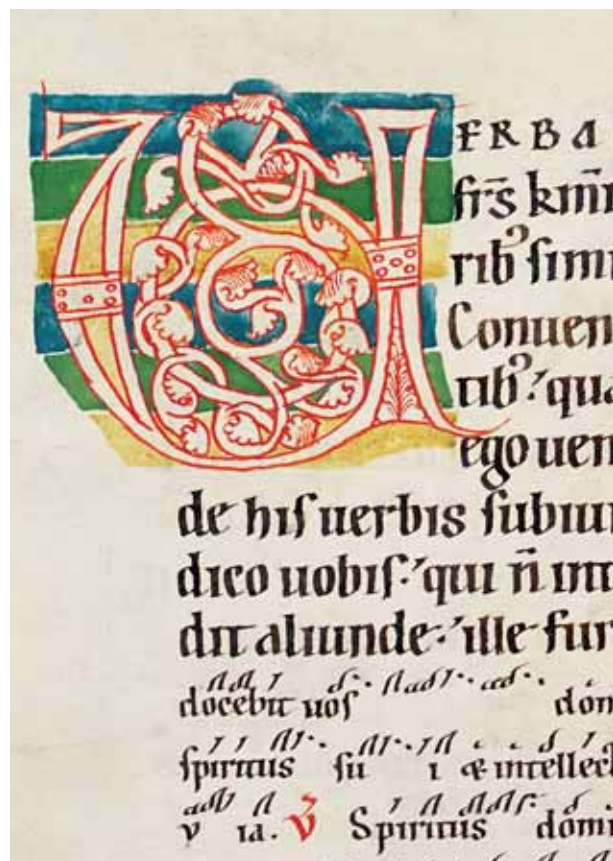 VERBA
fr̄s km̄i
ribꝰ simi
Conuen
ribꝰ: qua
ego uen
de hıſ uerbis ſubiu
dico uobıſ: qui n̄ int
dit aliunde: ille fur
docebit uoſ dom
ſpiritus ſu i & intellect
v ia. V̄ Spiritus domi